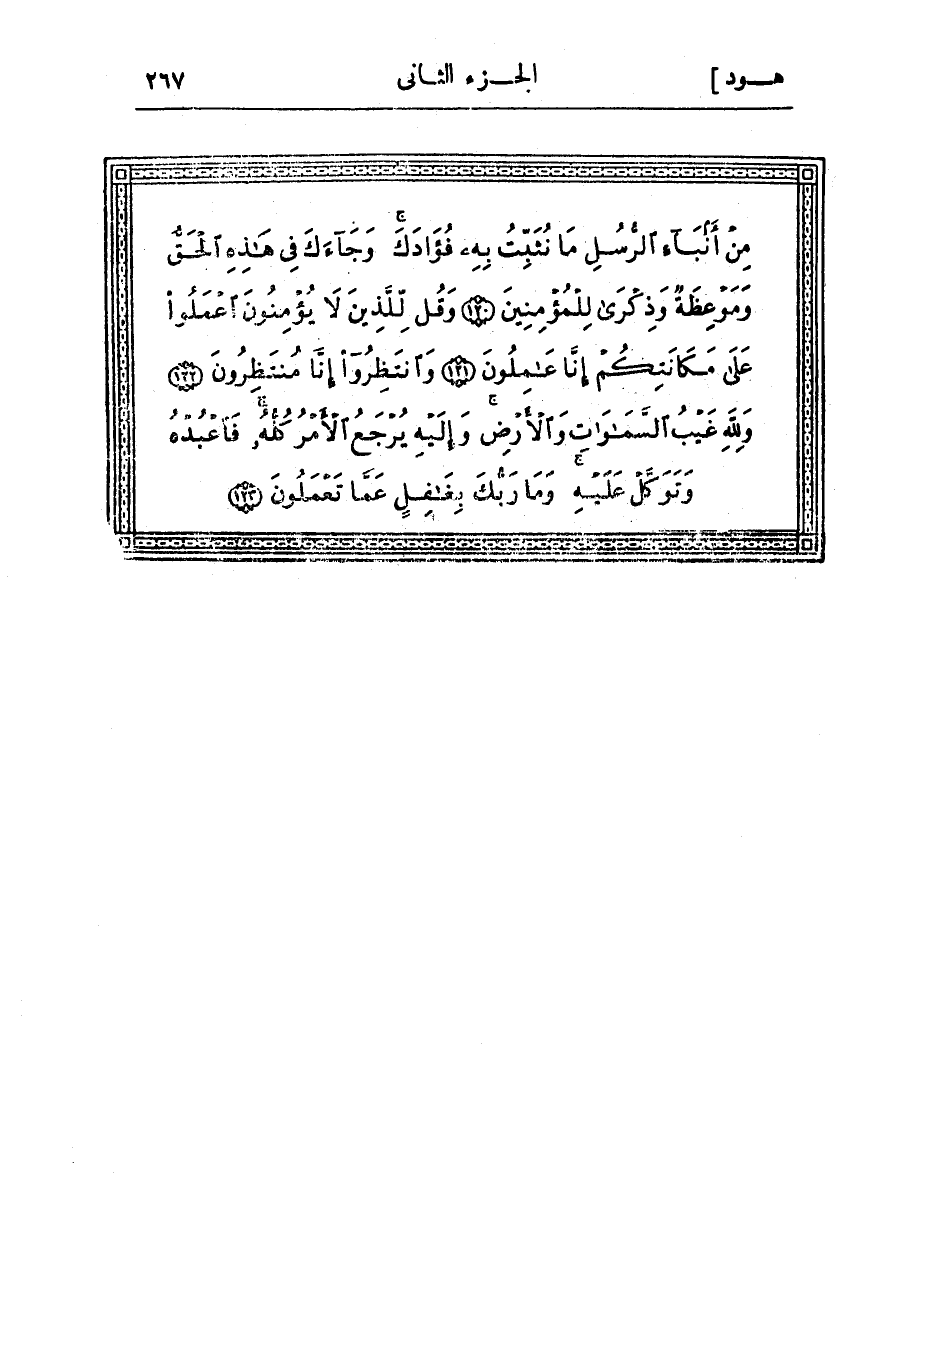 هـود ] الجـزء الثـانى ٢٦٧
مِنْ أَنۢبَآءِ ٱلرُّسُلِ مَا نُثَبِّتُ بِهِۦ فُؤَادَكَ ۚ وَجَآءَكَ فِى هَٰذِهِ ٱلْحَقُّ
وَمَوْعِظَةٌ وَذِكْرَىٰ لِلْمُؤْمِنِينَ ﴿١٢٠﴾ وَقُل لِّلَّذِينَ لَا يُؤْمِنُونَ ٱعْمَلُوا۟
عَلَىٰ مَكَانَتِكُمْ إِنَّا عَٰمِلُونَ ﴿١٢١﴾ وَٱنتَظِرُوٓا۟ إِنَّا مُنتَظِرُونَ ﴿١٢٢﴾
وَلِلَّهِ غَيْبُ ٱلسَّمَٰوَٰتِ وَٱلْأَرْضِ ۚ وَإِلَيْهِ يُرْجَعُ ٱلْأَمْرُ كُلُّهُۥ ۚ فَٱعْبُدْهُ
وَتَوَكَّلْ عَلَيْهِ ۚ وَمَا رَبُّكَ بِغَٰفِلٍ عَمَّا تَعْمَلُونَ ﴿١٢٣﴾